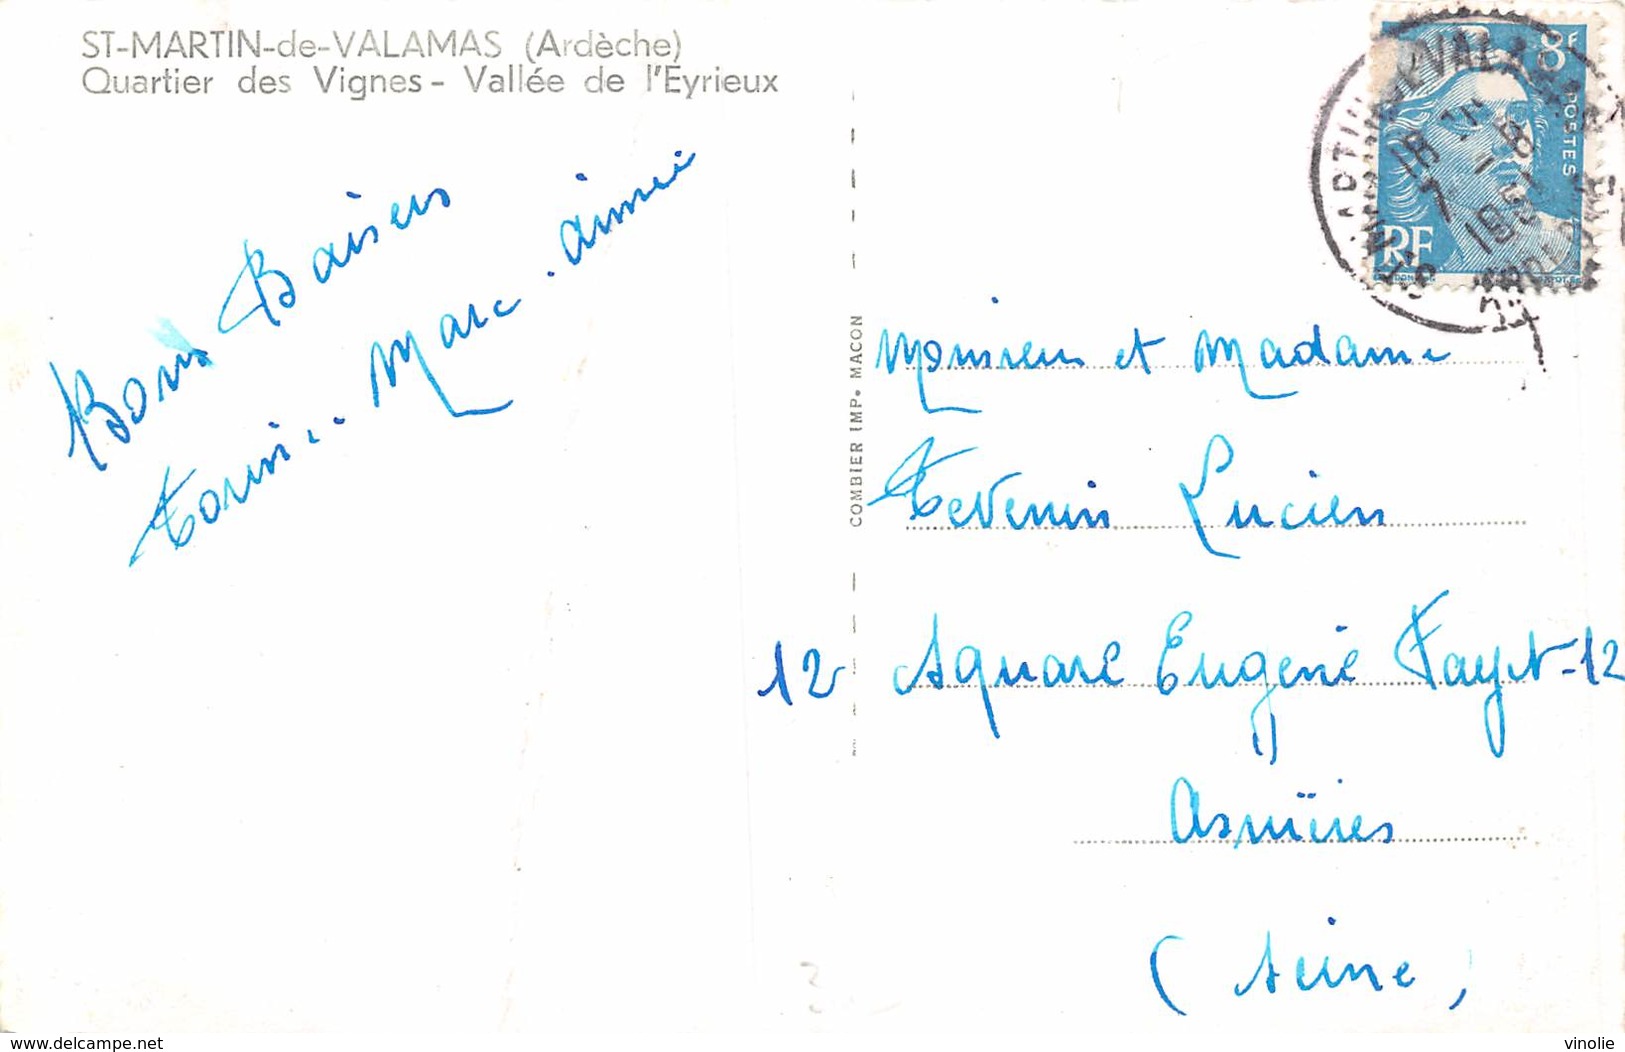 ST-MARTIN-de-VALAMAS (Ardèche)
Quartier des Vignes - Vallée de l'Eyrieux
Bons Baisers
Marc. aimée
COMBIER IMP. MACON
8F
POSTES
RF
18 H
7 - 8
Monsieur et Madame
Tevenin Lucien
12 Square Eugène Fayet - 12
Asnières
(Seine)
www.delcampe.net
vinolie